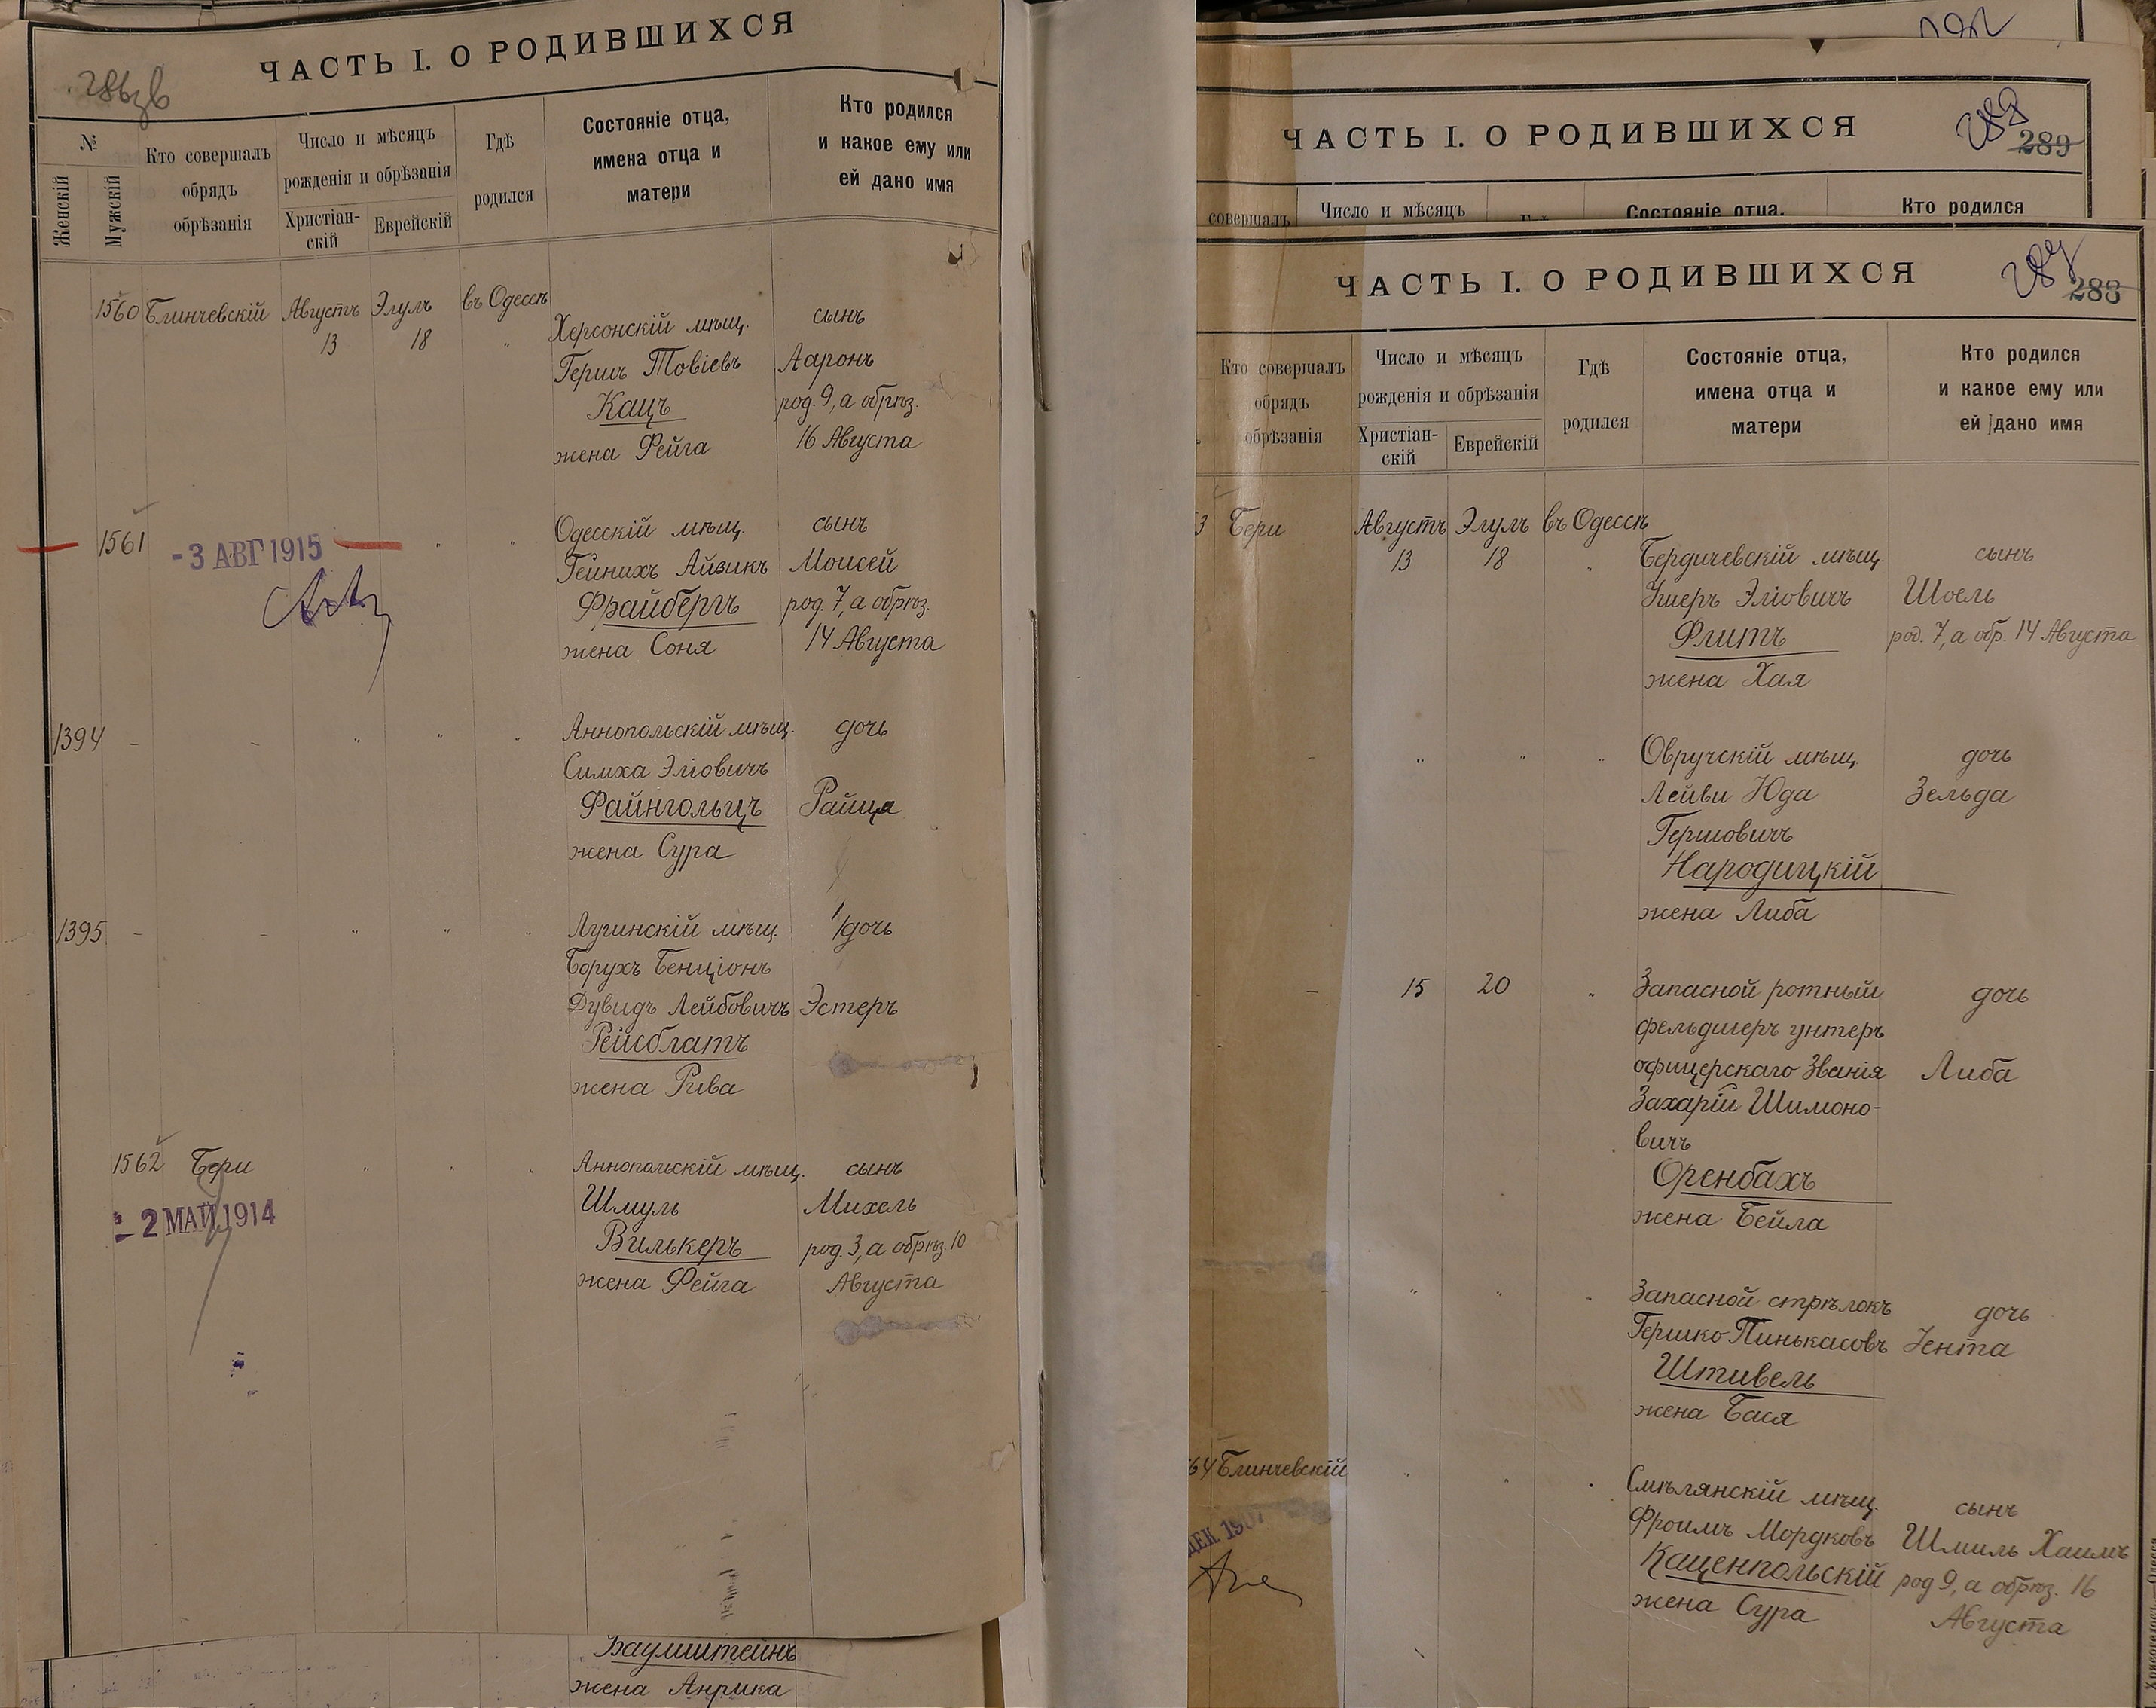 ЧАСТЬ I. О РОДИВШИХСЯ
№
Женскій
Мужскій
Кто совершалъ
обрядъ
обрѣзанія
Число и мѣсяцъ
рожденія и обрѣзанія
Христіан-
скій
Еврейскій
Гдѣ
родился
Состояніе отца,
имена отца и
матери
Кто родился
и какое ему или
ей дано имя
1560 Блинчевскій Августъ Элулъ въ Одессѣ
13 18 "
Херсонскій мѣщ. сынъ
Гершъ Товіевъ Ааронъ
Кацъ род. 9, а обрѣз.
жена Фейга 16 Августа
1561 - 3 АВГ 1915 " "
Одесскій мѣщ. сынъ
Гейнихъ Айзикъ Моисей
Фрайбергъ род. 7, а обрѣз.
жена Соня 14 Августа
1394 - - " " "
Аннопольскій мѣщ. дочь
Симха Эліовичъ
Файнгольцъ Райца
жена Сура
1395 - - " " "
Лугинскій мѣщ. дочь
Борухъ Бенціонъ
Дувидъ Лейбовичъ Эстеръ
Рейсблатъ
жена Рива
1562 Бери " " "
- 2 МАЙ 1914
Аннопольскій мѣщ. сынъ
Шмуль Михель
Вилькеръ род. 3, а обрѣз. 10
жена Фейга Августа
Баумштейнъ
жена Анрика
ЧАСТЬ I. О РОДИВШИХСЯ
288
289
совершалъ
Число и мѣсяцъ
Состояніе отца,
Кто родился
ЧАСТЬ I. О РОДИВШИХСЯ
287
288
Кто совершалъ
обрядъ
обрѣзанія
Число и мѣсяцъ
рожденія и обрѣзанія
Христіан-
скій
Еврейскій
Гдѣ
родился
Состояніе отца,
имена отца и
матери
Кто родился
и какое ему или
ей дано имя
3 Бери Августъ Элулъ въ Одессѣ
13 18 "
Бердичевскій мѣщ. сынъ
Ушеръ Эліовичъ Шоель
Флитъ род. 7, а обр. 14 Августа
жена Хая
- - " " "
Овручскій мѣщ. дочь
Лейви Юда Зельда
Гершовичъ
Народицкій
жена Либа
- - 15 20 "
Запасной ротный дочь
фельдшеръ унтеръ
офицерскаго Званія Либа
Захарій Шимоно-
вичъ
Оренбахъ
жена Бейла
" " "
Запасной стрѣлокъ дочь
Гершко Пинькасовъ Іента
Штивель
жена Бася
64 Блинчевскій " " "
ДЕК 1907
Смѣлянскій мѣщ. сынъ
Фроимъ Мордковъ Шмиль Хаимъ
Каценпольскій род 9, а обрѣз. 16
жена Сура Августа